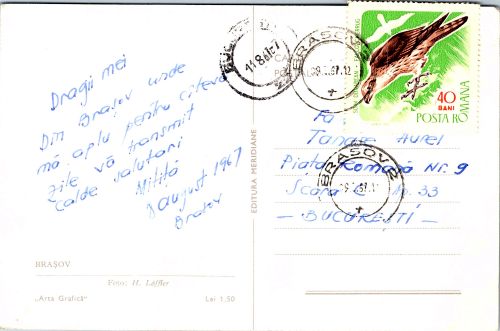 Dragii mei
Din Brașov unde
mă aflu pentru câteva
zile vă transmit
calde salutari
Mitită
8 august 1967
Brașov
BRAȘOV
Foto: H. Löffler
„Arta Grafică”
Lei 1.50
EDITURA MERIDIANE
11.8.67.
BRAȘOV 2
40
BANI
POSTA ROMANA
Tanase Aurel
Piața Romană Nr. 9
Scara
Ap. 33
— BUCUREȘTI —
BRAȘOV 2